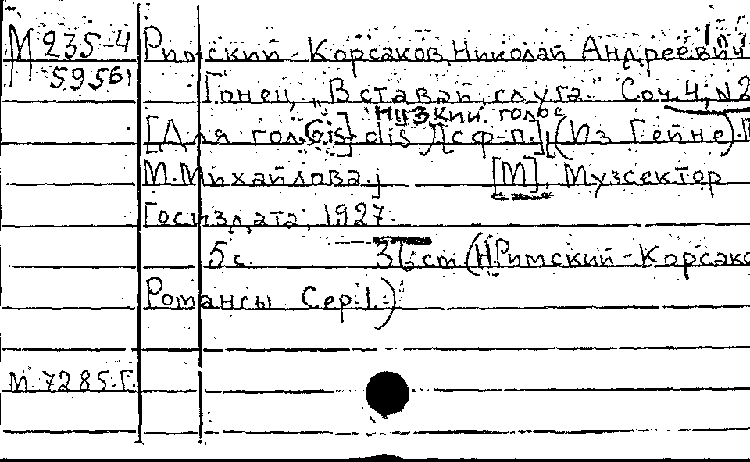 М 235-4 Римский-Корсаков, Николай Андреевич
59561
Гонец. „Вставай, слуга." Соч. 4, N 2
Низкий голос
[Для гол. dis) с ф-п.] (Из Гейне).
М. Михайлова.] [М], Музсектор
Госиздата, 1927.
5 с. 36 cm (Н. Римский-Корсако
Романсы Сер. 1.)
М. 7285. Г.